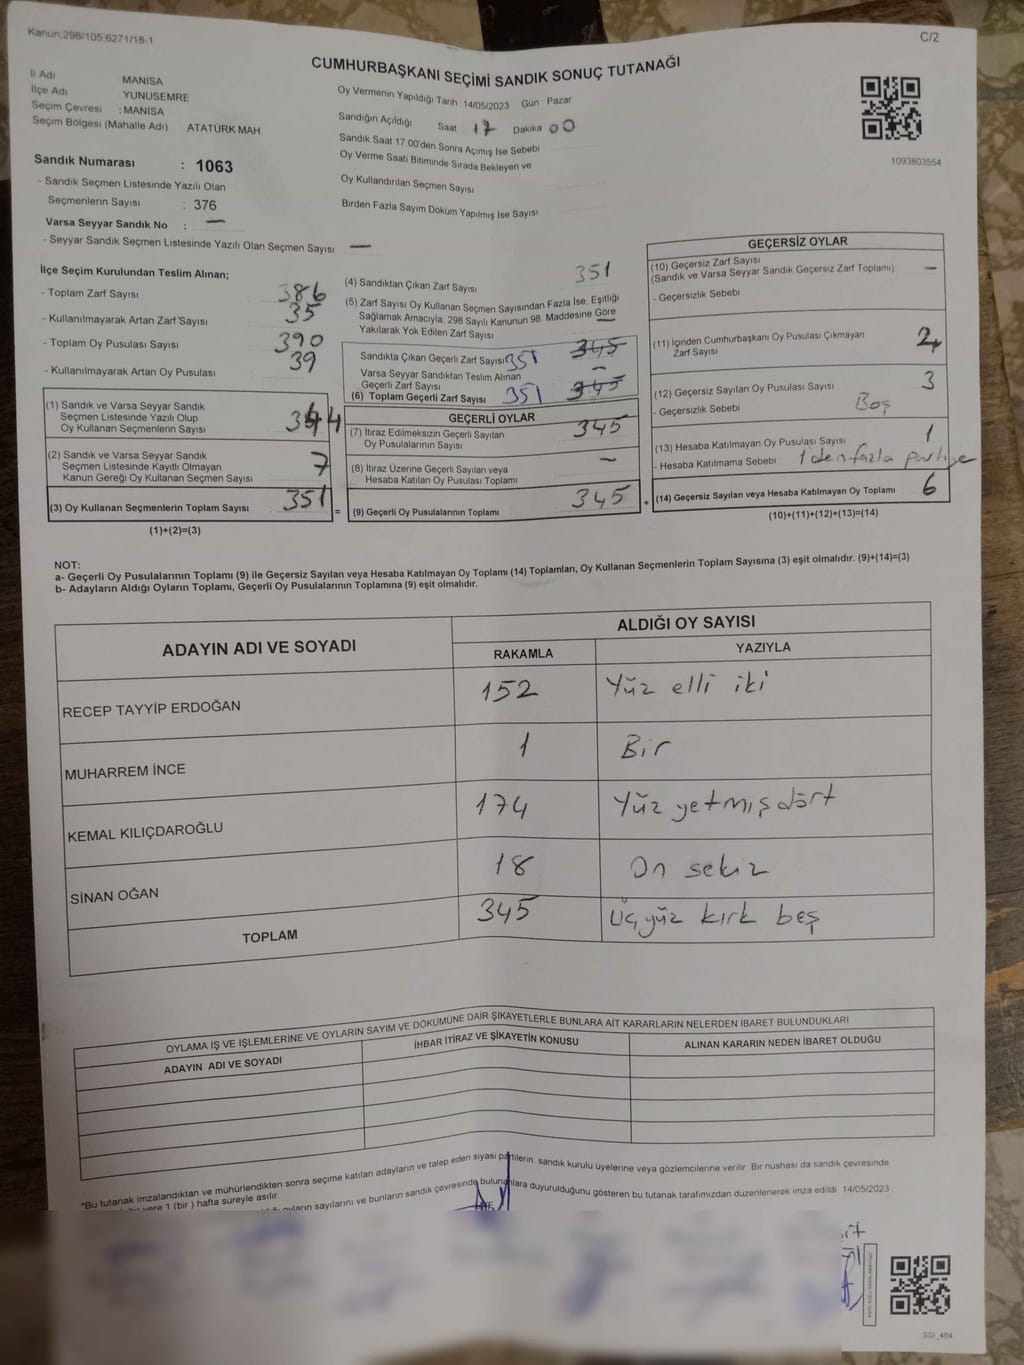 Kanun:298/105,6271/18-1
C/2
CUMHURBAŞKANI SEÇİMİ SANDIK SONUÇ TUTANAĞI
İl Adı MANİSA
İlçe Adı YUNUSEMRE
Seçim Çevresi : MANİSA
Seçim Bölgesi (Mahalle Adı) ATATÜRK MAH
Oy Vermenin Yapıldığı Tarih 14/05/2023 Gün Pazar
Sandığın Açıldığı Saat 17 Dakika 00
Sandık Saat 17 00'den Sonra Açımış İse Sebebi
Oy Verme Saati Bitiminde Sırada Bekleyen ve
Oy Kullandırılan Seçmen Sayısı
Birden Fazla Sayım Döküm Yapılmış İse Sayısı
1093803554
Sandık Numarası : 1063
- Sandık Seçmen Listesinde Yazılı Olan
Seçmenlerin Sayısı : 376
Varsa Seyyar Sandık No : —
- Seyyar Sandık Seçmen Listesinde Yazılı Olan Seçmen Sayısı —
İlçe Seçim Kurulundan Teslim Alınan;
- Toplam Zarf Sayısı 386
- Kullanılmayarak Artan Zarf Sayısı 35
- Toplam Oy Pusulası Sayısı 390
- Kullanılmayarak Artan Oy Pusulası 39
(1) Sandık ve Varsa Seyyar Sandık
Seçmen Listesinde Yazılı Olup
Oy Kullanan Seçmenlerin Sayısı 344
(2) Sandık ve Varsa Seyyar Sandık
Seçmen Listesinde Kayıtlı Olmayan
Kanun Gereği Oy Kullanan Seçmen Sayısı 7
(3) Oy Kullanan Seçmenlerin Toplam Sayısı 351
(1)+(2)=(3)
=
(4) Sandıktan Çıkan Zarf Sayısı 351
(5) Zarf Sayısı Oy Kullanan Seçmen Sayısından Fazla İse, Eşitliği
Sağlamak Amacıyla, 298 Sayılı Kanunun 98. Maddesine Göre
Yakılarak Yok Edilen Zarf Sayısı —
Sandıkta Çıkan Geçerli Zarf Sayısı 351 345
Varsa Seyyar Sandıktan Teslim Alınan
Geçerli Zarf Sayısı —
(6) Toplam Geçerli Zarf Sayısı 351 345
GEÇERLİ OYLAR
(7) İtiraz Edilmeksizin Geçerli Sayılan
Oy Pusulalarının Sayısı 345
(8) İtiraz Üzerine Geçerli Sayılan veya
Hesaba Katılan Oy Pusulası Toplamı —
(9) Geçerli Oy Pusulalarının Toplamı 345
+
GEÇERSİZ OYLAR
(10) Geçersiz Zarf Sayısı
(Sandık ve Varsa Seyyar Sandık Geçersiz Zarf Toplamı) —
- Geçersizlik Sebebi
(11) İçinden Cumhurbaşkanı Oy Pusulası Çıkmayan
Zarf Sayısı 2
(12) Geçersiz Sayılan Oy Pusulası Sayısı 3
- Geçersizlik Sebebi Boş
(13) Hesaba Katılmayan Oy Pusulası Sayısı 1
- Hesaba Katılmama Sebebi 1 den fazla partiye
(14) Geçersiz Sayılan veya Hesaba Katılmayan Oy Toplamı 6
(10)+(11)+(12)+(13)=(14)
NOT:
a- Geçerli Oy Pusulalarının Toplamı (9) ile Geçersiz Sayılan veya Hesaba Katılmayan Oy Toplamı (14) Toplamları, Oy Kullanan Seçmenlerin Toplam Sayısına (3) eşit olmalıdır. (9)+(14)=(3)
b- Adayların Aldığı Oyların Toplamı, Geçerli Oy Pusulalarının Toplamına (9) eşit olmalıdır.
ADAYIN ADI VE SOYADI
ALDIĞI OY SAYISI
RAKAMLA YAZIYLA
RECEP TAYYİP ERDOĞAN 152 Yüz elli iki
MUHARREM İNCE 1 Bir
KEMAL KILIÇDAROĞLU 174 Yüz yetmiş dört
SİNAN OĞAN 18 On sekiz
TOPLAM 345 Üç yüz kırk beş
OYLAMA İŞ VE İŞLEMLERİNE VE OYLARIN SAYIM VE DÖKÜMÜNE DAİR ŞİKAYETLERLE BUNLARA AİT KARARLARIN NELERDEN İBARET BULUNDUKLARI
ADAYIN ADI VE SOYADI İHBAR İTİRAZ VE ŞİKAYETİN KONUSU ALINAN KARARIN NEDEN İBARET OLDUĞU
*Bu tutanak imzalandıktan ve mühürlendikten sonra seçime katılan adayların ve talep eden siyasi partilerin sandık kurulu üyelerine veya gözlemcilerine verilir Bir nushası da sandık çevresinde
1 (bir ) hafta süreyle asılır.
oyların sayılarını ve bunların sandık çevresinde bulunanlara duyurulduğunu gösteren bu tutanak tarafımızdan düzenlenerek imza edildi 14/05/2023
SSI_404